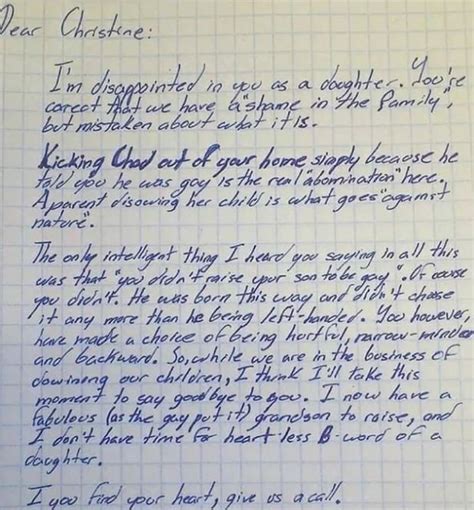 Dear Christine:
I'm disappointed in you as a daughter. You're
corect that we have a "shame in the family",
but mistaken about what it is.
Kicking Chad out of your home simply because he
told you he was gay is the real "abomination" here.
A parent disowing her child is what goes "against
nature".
The only intelligent thing I heard you saying in all this
was that "you didn't raise your son to be gay". Of couse
you didn't. He was born this way and didn't choose
it any more than he being left-handed. You however,
have made a choice of being hurtful, narrow-minded
and backward. So, while we are in the business of
dowining our children, I think I'll take this
moment to say goodbye to you. I now have a
fabulous (as the gay put it) grandson to raise, and
I don't have time for heart-less B-word of a
daughter.
I you find your heart, give us a call.